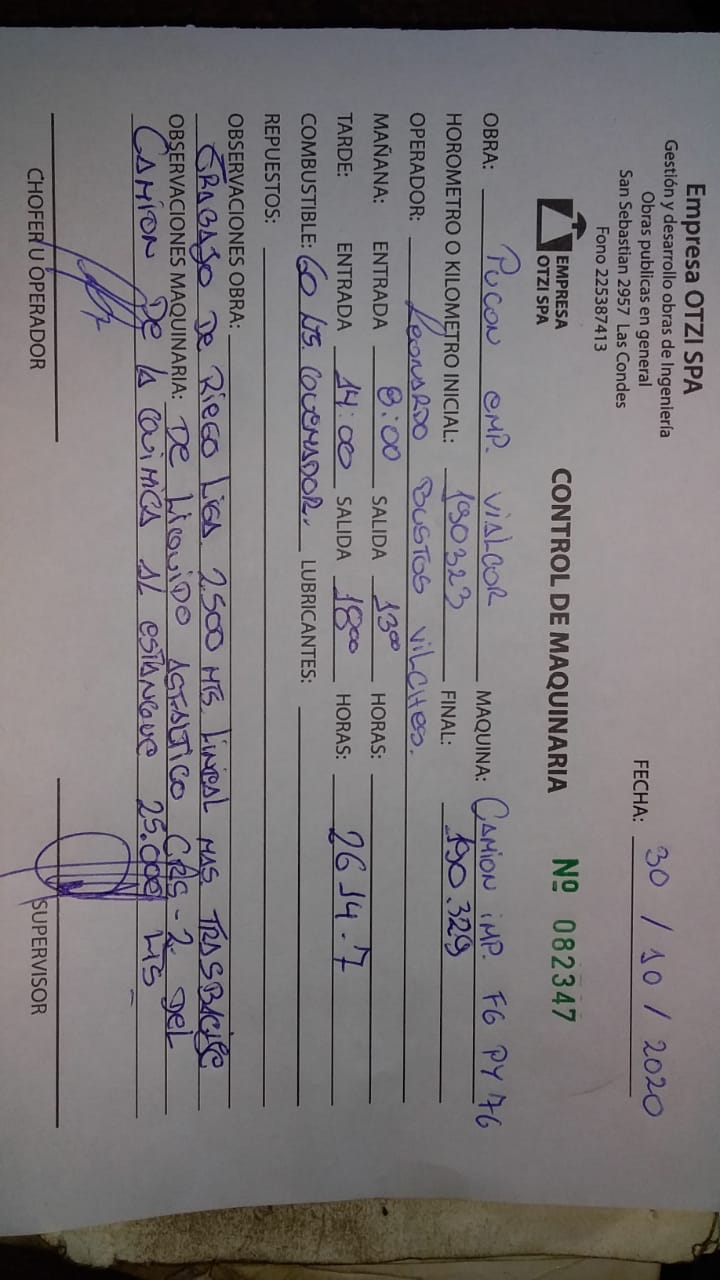 Empresa OTZI SPA
Gestión y desarrollo obras de Ingeniería
Obras publicas en general
San Sebastian 2957 Las Condes
Fono 225387413
FECHA: 30 / 10 / 2020
EMPRESA
OTZI SPA
CONTROL DE MAQUINARIA
Nº 082347
OBRA: PUCON EMP. VIALCOR MAQUINA: CAMION IMP. FG PY 76
HOROMETRO O KILOMETRO INICIAL: 190323 FINAL: 190.329
OPERADOR: LEONARDO BUSTOS VILCHES.
MAÑANA: ENTRADA 8:00 SALIDA 13:00 HORAS:
TARDE: ENTRADA 14:00 SALIDA 18:00 HORAS: 2614.7
COMBUSTIBLE: 60 LTS. QUEMADOR. LUBRICANTES:
REPUESTOS:
OBSERVACIONES OBRA:
TRABAJO DE RIEGO LIGA. 2.500 MTS. LINEAL MAS. TRASBACIJE
OBSERVACIONES MAQUINARIA: DE LIQUIDO ASFALTICO CRS-2. DEL
CAMION DE LA QUIMICA AL ESTANQUE 25.000 LTS
CHOFER U OPERADOR
SUPERVISOR